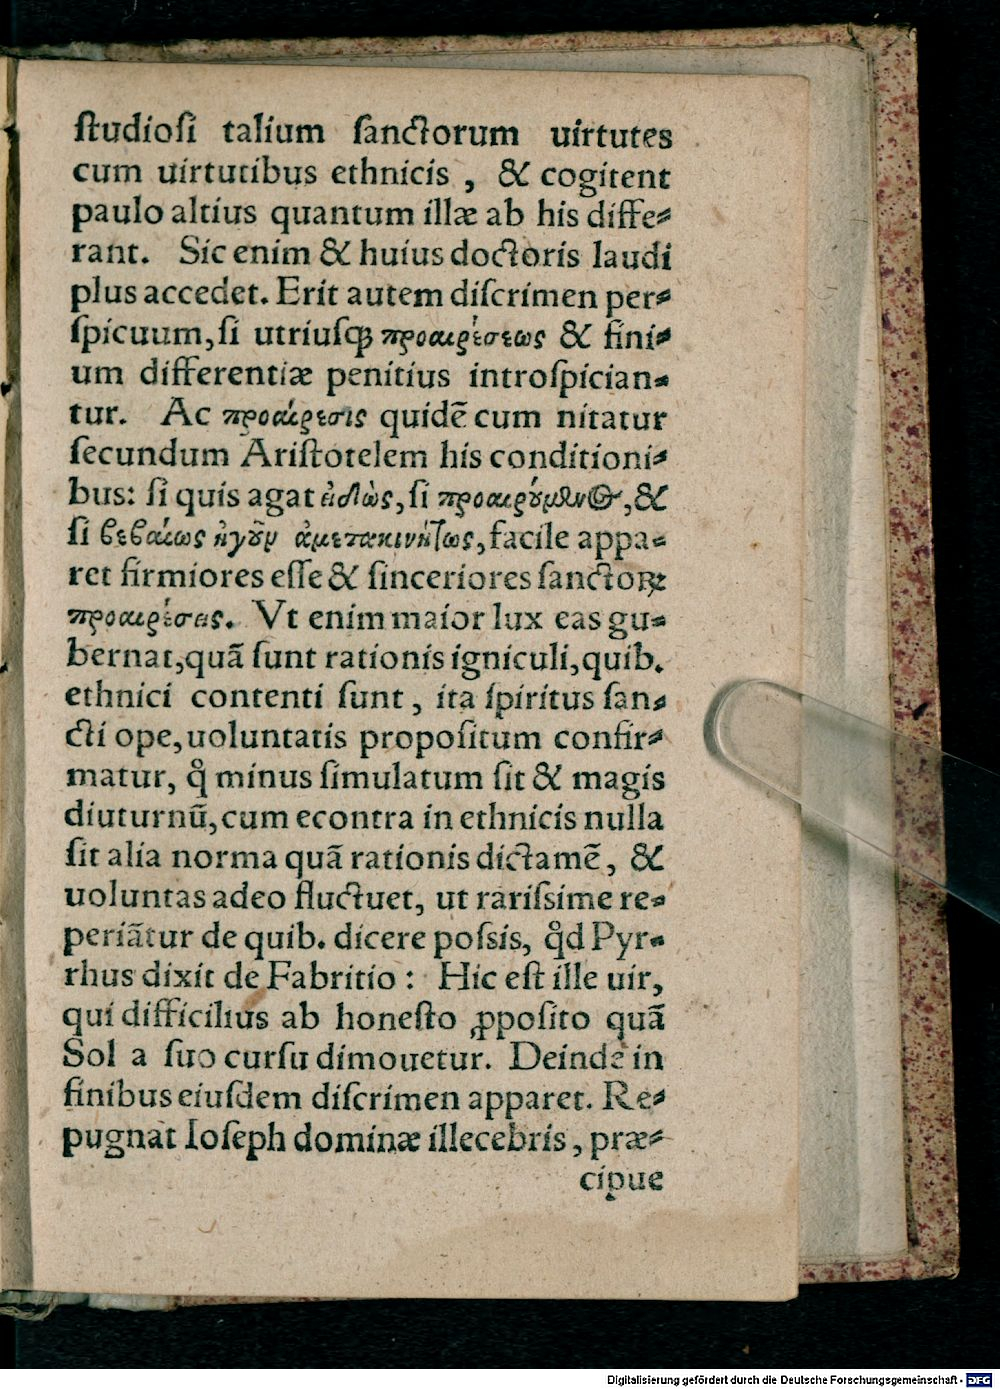 ſtudioſi talium ſanctorum uirtutes
cum uirtutibus ethnicis, & cogitent
paulo altius quantum illæ ab his diffe-
rant. Sic enim & huius doctoris laudi
plus accedet. Erit autem diſcrimen per-
ſpicuum, ſi utriuſqꝫ προαιρέσεως & fini-
um differentiæ penitius introſpician-
tur. Ac προαίρεσις quidẽ cum nitatur
ſecundum Ariſtotelem his conditioni-
bus: ſi quis agat εἰδὼς, ſi προαιρούμενος, &
ſi βεβαίως ἠγοῦν ἀμετακινήτως, facile appa-
ret firmiores eſſe & ſinceriores ſanctoꝝ
προαιρέσεις. Vt enim maior lux eas gu-
bernat, quã ſunt rationis igniculi, quib.
ethnici contenti ſunt, ita ſpiritus ſan-
cti ope, uoluntatis propoſitum confir-
matur, q̊ minus ſimulatum ſit & magis
diuturnũ, cum econtra in ethnicis nulla
ſit alia norma quã rationis dictamẽ, &
uoluntas adeo fluctuet, ut rariſsime re-
periãtur de quib. dicere poſsis, q̊d Pyr-
rhus dixit de Fabritio: Hic eſt ille uir,
qui difficilius ab honeſto ꝓpoſito quã
Sol a ſuo curſu dimouetur. Deinde in
finibus eiuſdem diſcrimen apparet. Re-
pugnat Ioſeph dominæ illecebris, præ-
cipue
Digitalisierung gefördert durch die Deutsche Forschungsgemeinschaft - DFG